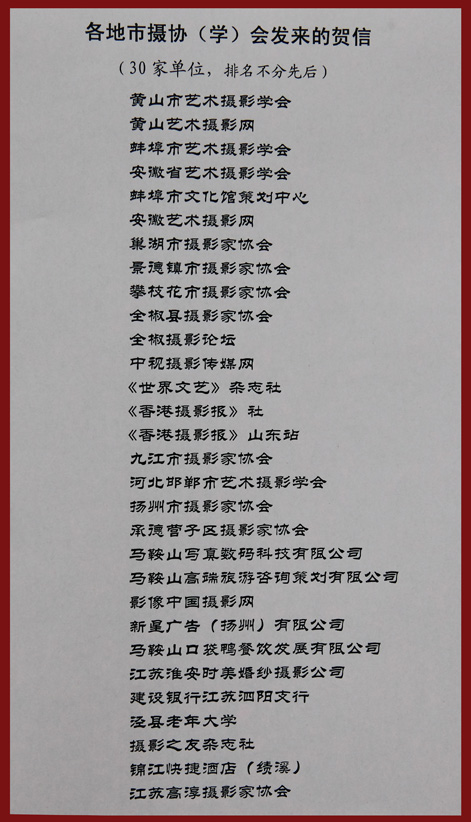 各地市摄协（学）会发来的贺信
（30家单位，排名不分先后）
黄山市艺术摄影学会
黄山艺术摄影网
蚌埠市艺术摄影学会
安徽省艺术摄影学会
蚌埠市文化馆策划中心
安徽艺术摄影网
巢湖市摄影家协会
景德镇市摄影家协会
攀枝花市摄影家协会
全椒县摄影家协会
全椒摄影论坛
中视摄影传媒网
《世界文艺》杂志社
《香港摄影报》社
《香港摄影报》山东站
九江市摄影家协会
河北邯郸市艺术摄影学会
扬州市摄影家协会
承德营子区摄影家协会
马鞍山写真数码科技有限公司
马鞍山高瑞旅游咨询策划有限公司
影像中国摄影网
新星广告（扬州）有限公司
马鞍山口袋鸭餐饮发展有限公司
江苏淮安时美婚纱摄影公司
建设银行江苏泗阳支行
泾县老年大学
摄影之友杂志社
锦江快捷酒店（绩溪）
江苏高淳摄影家协会